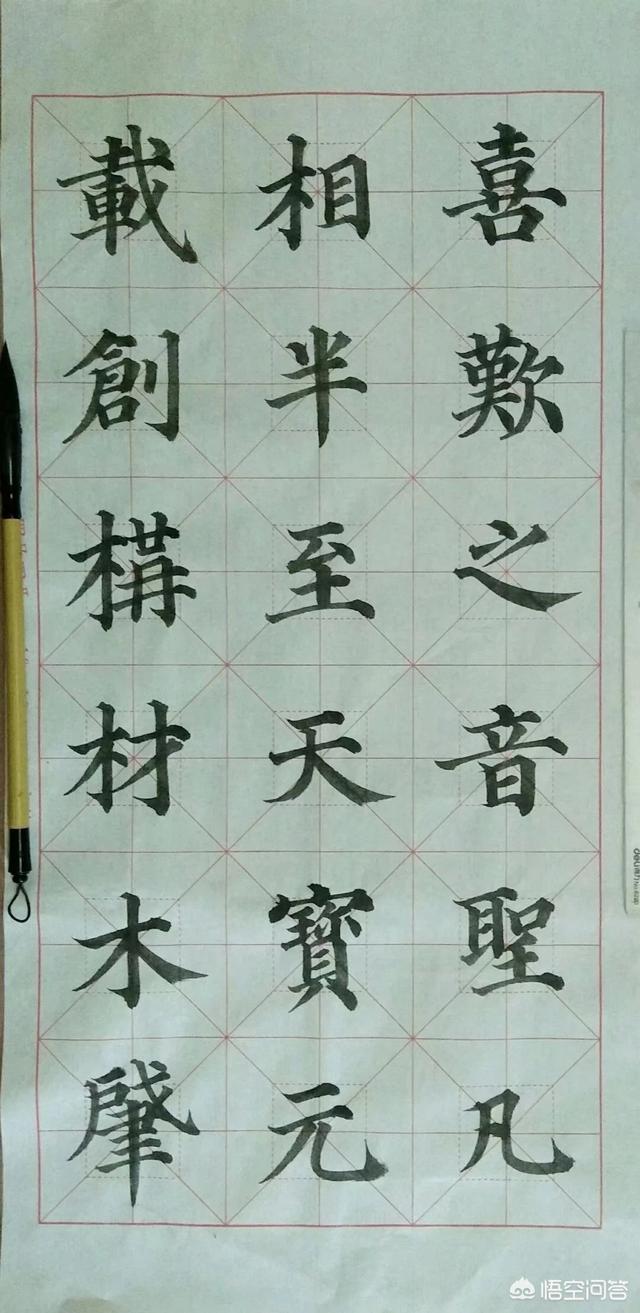 喜歎之音聖凡
相半至天寶元
載創構材木肇
deli
悟空问答